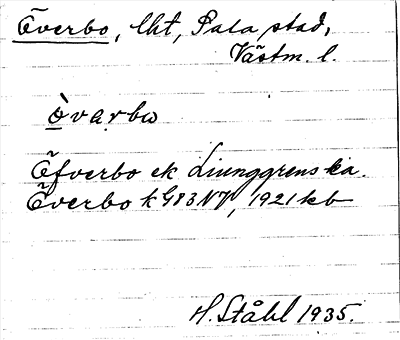 Överbo, lht, Sala stad,
Västm. l.
òvarbω
Öfverbo ek Ljunggrens ka.
Överbo k G83NV, 1921 kb
H. Ståhl 1935.